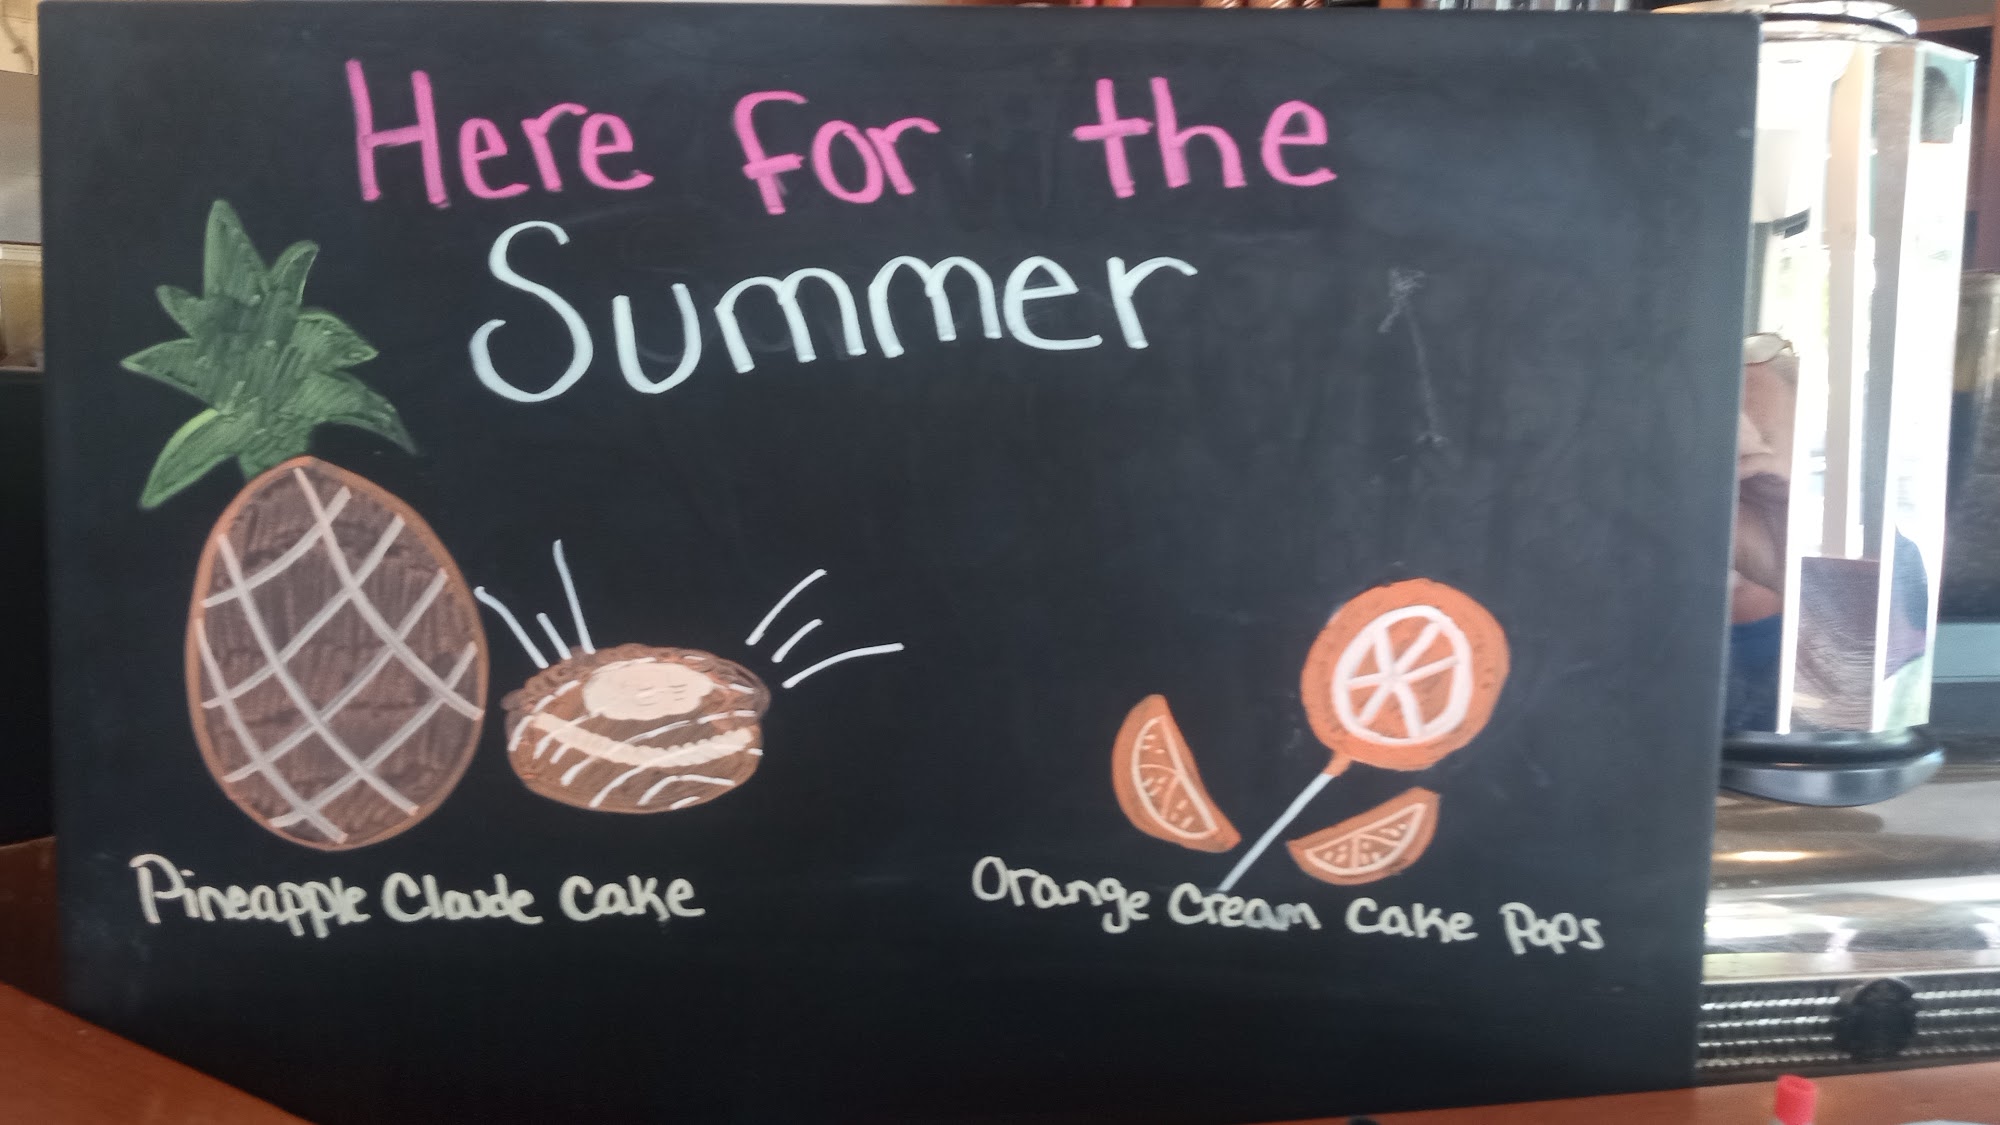 Here for the
Summer
Pineapple Cloude Cake
Orange Cream Cake Pops